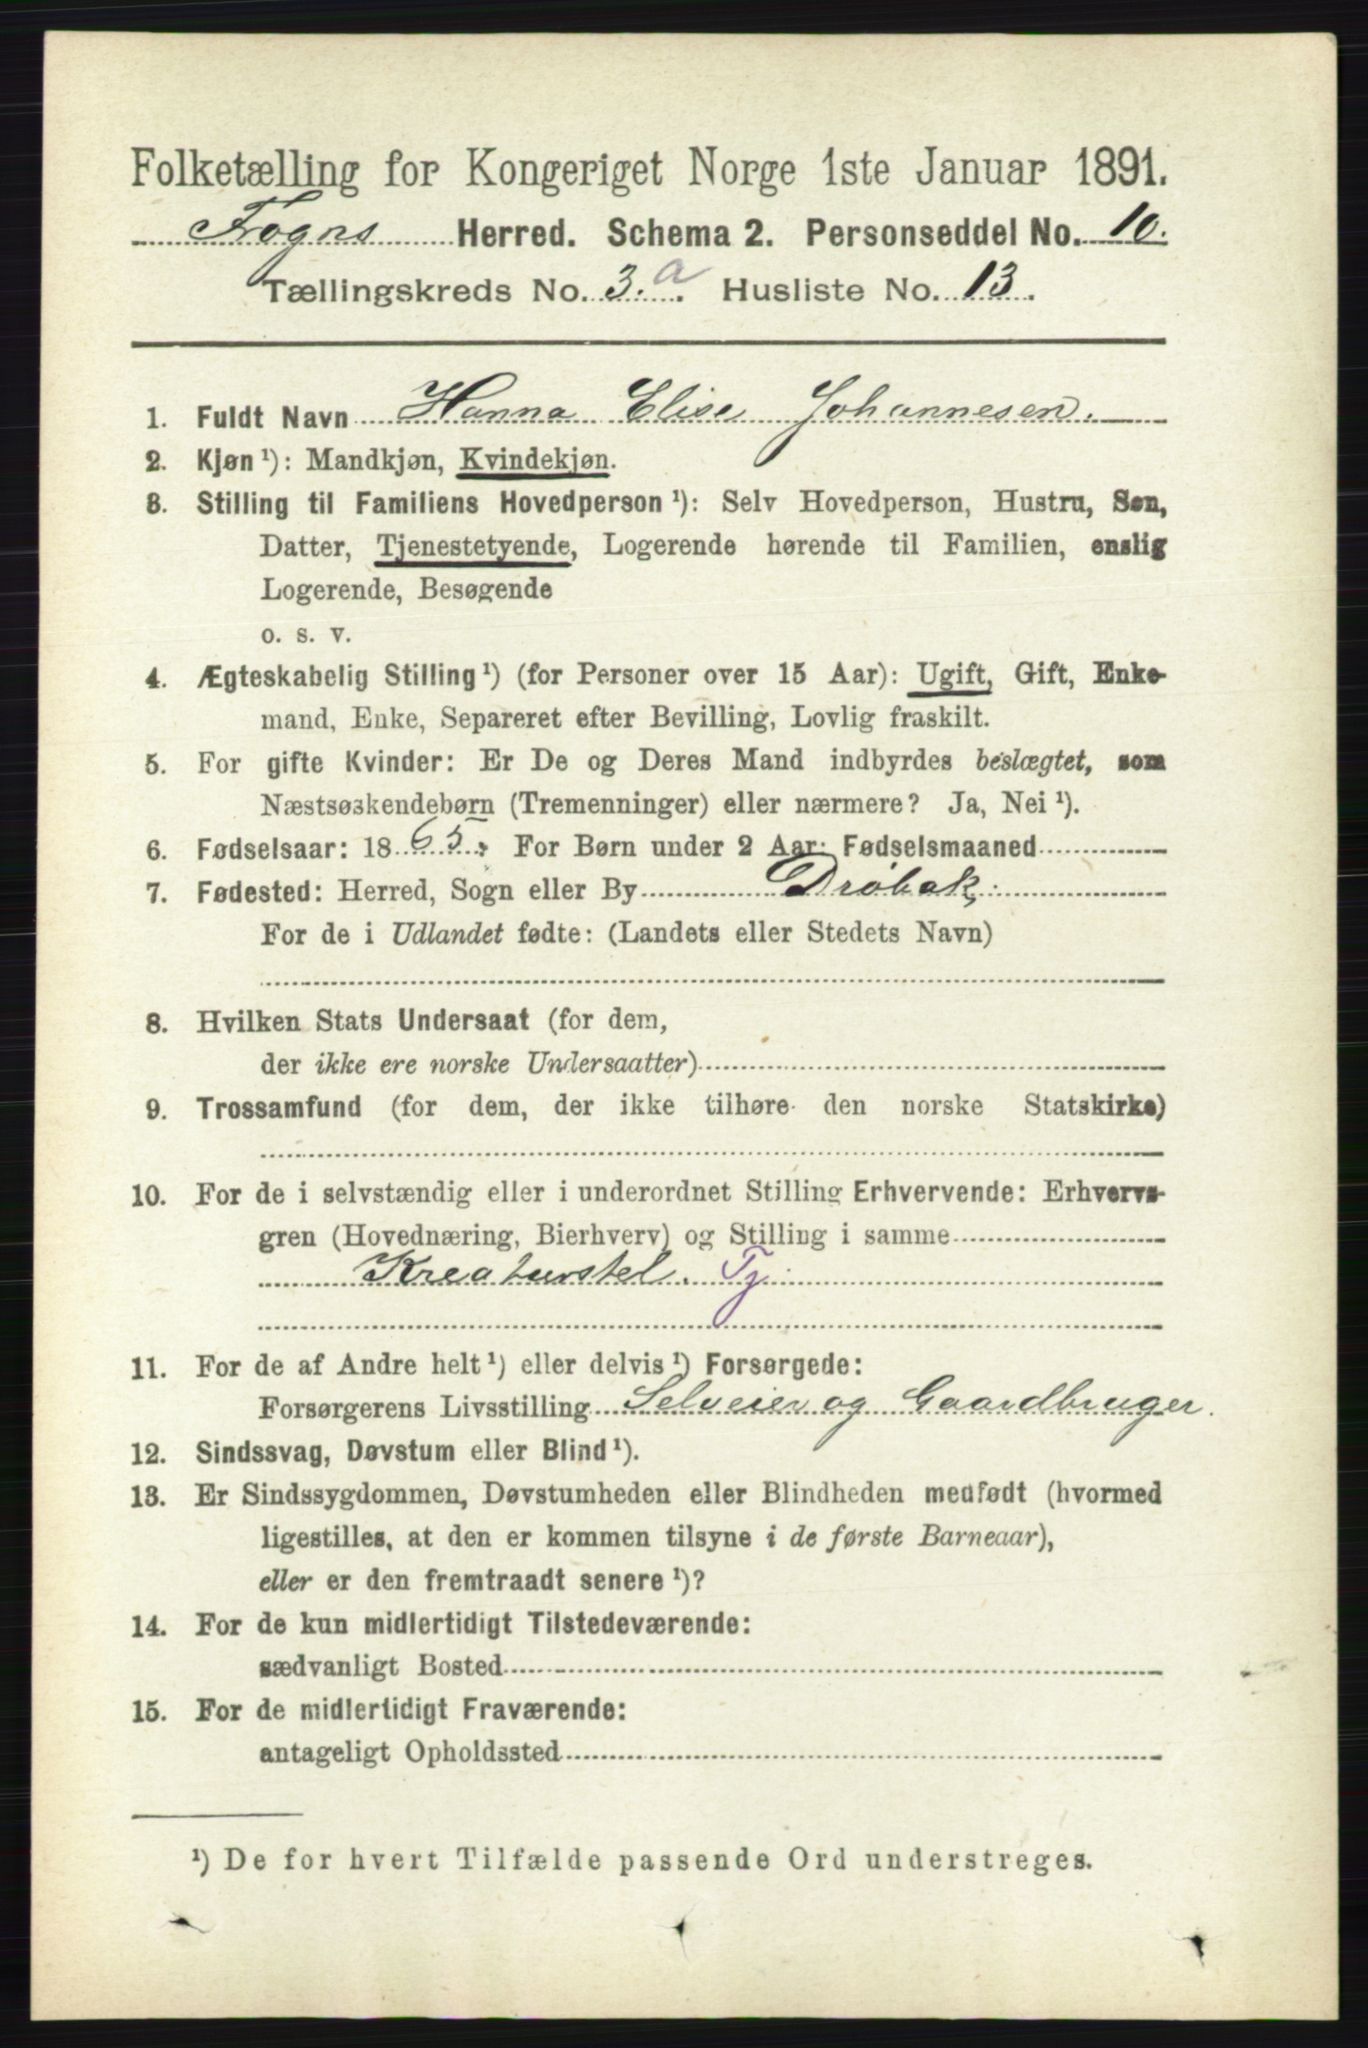 Folketælling for Kongeriget Norge 1ste Januar 1891.
Frogns Herred. Schema 2. Personseddel No. 10.
Tællingskreds No. 3. a. Husliste No. 13.
1. Fuldt Navn Hanna Elise Johannesen.
2. Kjøn ¹): Mandkjøn, Kvindekjøn.
3. Stilling til Familiens Hovedperson ¹): Selv Hovedperson, Hustru, Søn,
Datter, Tjenestetyende, Logerende hørende til Familien, enslig
Logerende, Besøgende
o. s. v.
4. Ægteskabelig Stilling ¹) (for Personer over 15 Aar): Ugift, Gift, Enke-
mand, Enke, Separeret efter Bevilling, Lovlig fraskilt.
5. For gifte Kvinder: Er De og Deres Mand indbyrdes beslægtet, som
Næstsøskendebørn (Tremenninger) eller nærmere? Ja, Nei ¹).
6. Fødselsaar: 1865. For Børn under 2 Aar: Fødselsmaaned
7. Fødested: Herred, Sogn eller By Drøbak.
For de i Udlandet fødte: (Landets eller Stedets Navn)
8. Hvilken Stats Undersaat (for dem,
der ikke ere norske Undersaatter)
9. Trossamfund (for dem, der ikke tilhøre den norske Statskirke)
10. For de i selvstændig eller i underordnet Stilling Erhvervende: Erhvervs-
gren (Hovednæring, Bierhverv) og Stilling i samme
Kreaturstel. Tj.
11. For de af Andre helt ¹) eller delvis ¹) Forsørgede:
Forsørgerens Livsstilling Selveier og Gaardbruger.
12. Sindssvag, Døvstum eller Blind ¹).
13. Er Sindssygdommen, Døvstumheden eller Blindheden medfødt (hvormed
ligestilles, at den er kommen tilsyne i de første Barneaar),
eller er den fremtraadt senere ¹)?
14. For de kun midlertidigt Tilstedeværende:
sædvanligt Bosted
15. For de midlertidigt Fraværende:
antageligt Opholdssted
¹) De for hvert Tilfælde passende Ord understreges.